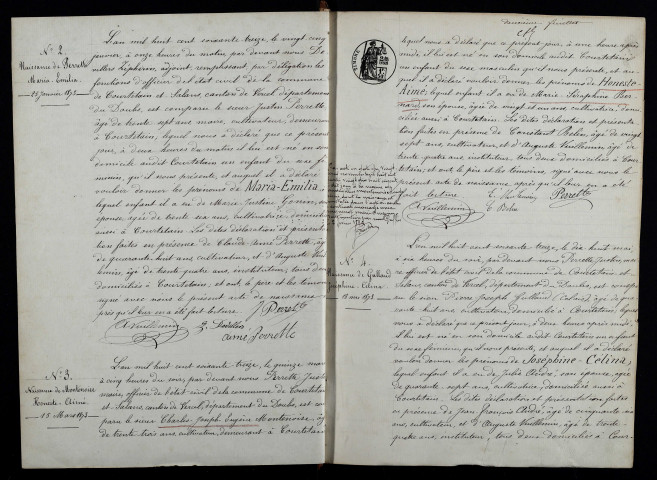 N.° 2.
Naissance de Perrette
Maria-Emilia.
25 janvier 1873
L'an mil huit cent soixante treize, le vingt cinq
janvier, à onze heures du matin par devant nous De
Zéphirin, adjoint, remplissant par délégation les
fonctions d'officier de l'état civil de la commune
de Courtetain et Salans, canton de Vercel, département
du Doubs, est comparu le sieur Justin Perrette,
âgé de trente sept ans, maire, cultivateur, demeurant
à Courtetain, lequel nous a déclaré que ce présent
jour, à deux heures du matin il lui est né en son
domicile audit Courtetain un enfant du sexe fé
minin, qu'il nous présente, et auquel il a déclaré
vouloir donner les prénoms de Maria-Emilia,
lequel enfant il a eu de Marie Justine Gonin, son
épouse âgée de trente six ans, cultivatrice domiciliée
aussi à Courtetain. Les dites déclaration et présenta
tion faites en présence de Claude Aimé Perrette, âgé
de quarante huit ans cultivateur, et d'Auguste Vuille
min, âgé de trente quatre ans, instituteur, tous deux
domiciliés à Courtetain, et ont le père et les témoins
signé avec nous le présent acte de naissance
après qu'il leur en a été fait lecture.
J Perrette
A Vuillemin
aimé Perrette
N.° 3.
Naissance de Montenoise
Honeste-Aimé.
15 Mars 1873
L'an mil huit cent soixante treize, le quinze mars
à cinq heures du soir, par devant nous Perrette Justin
maire, officier de l'état civil de la commune de Courtetain
et Salans canton de Vercel, département du Doubs, est com
paru le sieur Charles Joseph Eugène Montenoise, âgé
de trente trois ans, cultivateur, demeurant à Courtetain
deuxième feuillet
lequel nous a déclaré que ce présent jour, à une heure après
midi il lui est né en son domicile audit Courtetain
un enfant du sexe masculin qu'il nous présente, et au
quel il a déclaré vouloir donner les prénoms de Honeste
Aimé, lequel enfant il a eu de Marie Séraphine Ber
nard, son épouse, âgée de vingt et un ans, cultivatrice, domi
ciliée aussi à Courtetain. Les dites déclaration et présenta
tion faites en présence de Constant Belin, âgé de vingt
sept ans, cultivateur, et d'Auguste Vuillemin, âgé de
trente quatre ans, instituteur, tous deux domiciliés à Cour
tetain, et ont le père et les témoins, signé avec nous le
présent acte de naissance après qu'il leur en a été
fait lecture.
A Vuillemin
C Belin
Perrette
N.° 4.
Naissance de Gallaud
Joséphine-Célina
18 mai 1873
L'an mil huit cent soixante treize, le dix huit mai,
à six heures du soir, par devant nous Perrette Justin, mai
re officier de l'état civil de la commune de Courtetain et
Salans canton de Vercel, département du Doubs, est comparu
le sieur Pierre Joseph Gallaud, âgé de qua
rante huit ans cultivateur domicilié à Courtetain, lequel
nous a déclaré que ce présent jour, à deux heures après midi,
il lui est né en son domicile audit Courtetain un enfant
du sexe féminin, qu'il nous présente, et auquel il a déclaré
vouloir donner les prénoms de Joséphine-Célina,
lequel enfant il a eu de Julie André, son épouse, âgée
de quarante sept ans, cultivatrice domiciliée aussi à
Courtetain. Les dites déclaration et présentation faites
en présence de Jean François André, âgé de cinquante six
ans, cultivateur, et d'Auguste Vuillemin, âgé de trente-
quatre ans, instituteur, tous deux domiciliés à Cour-